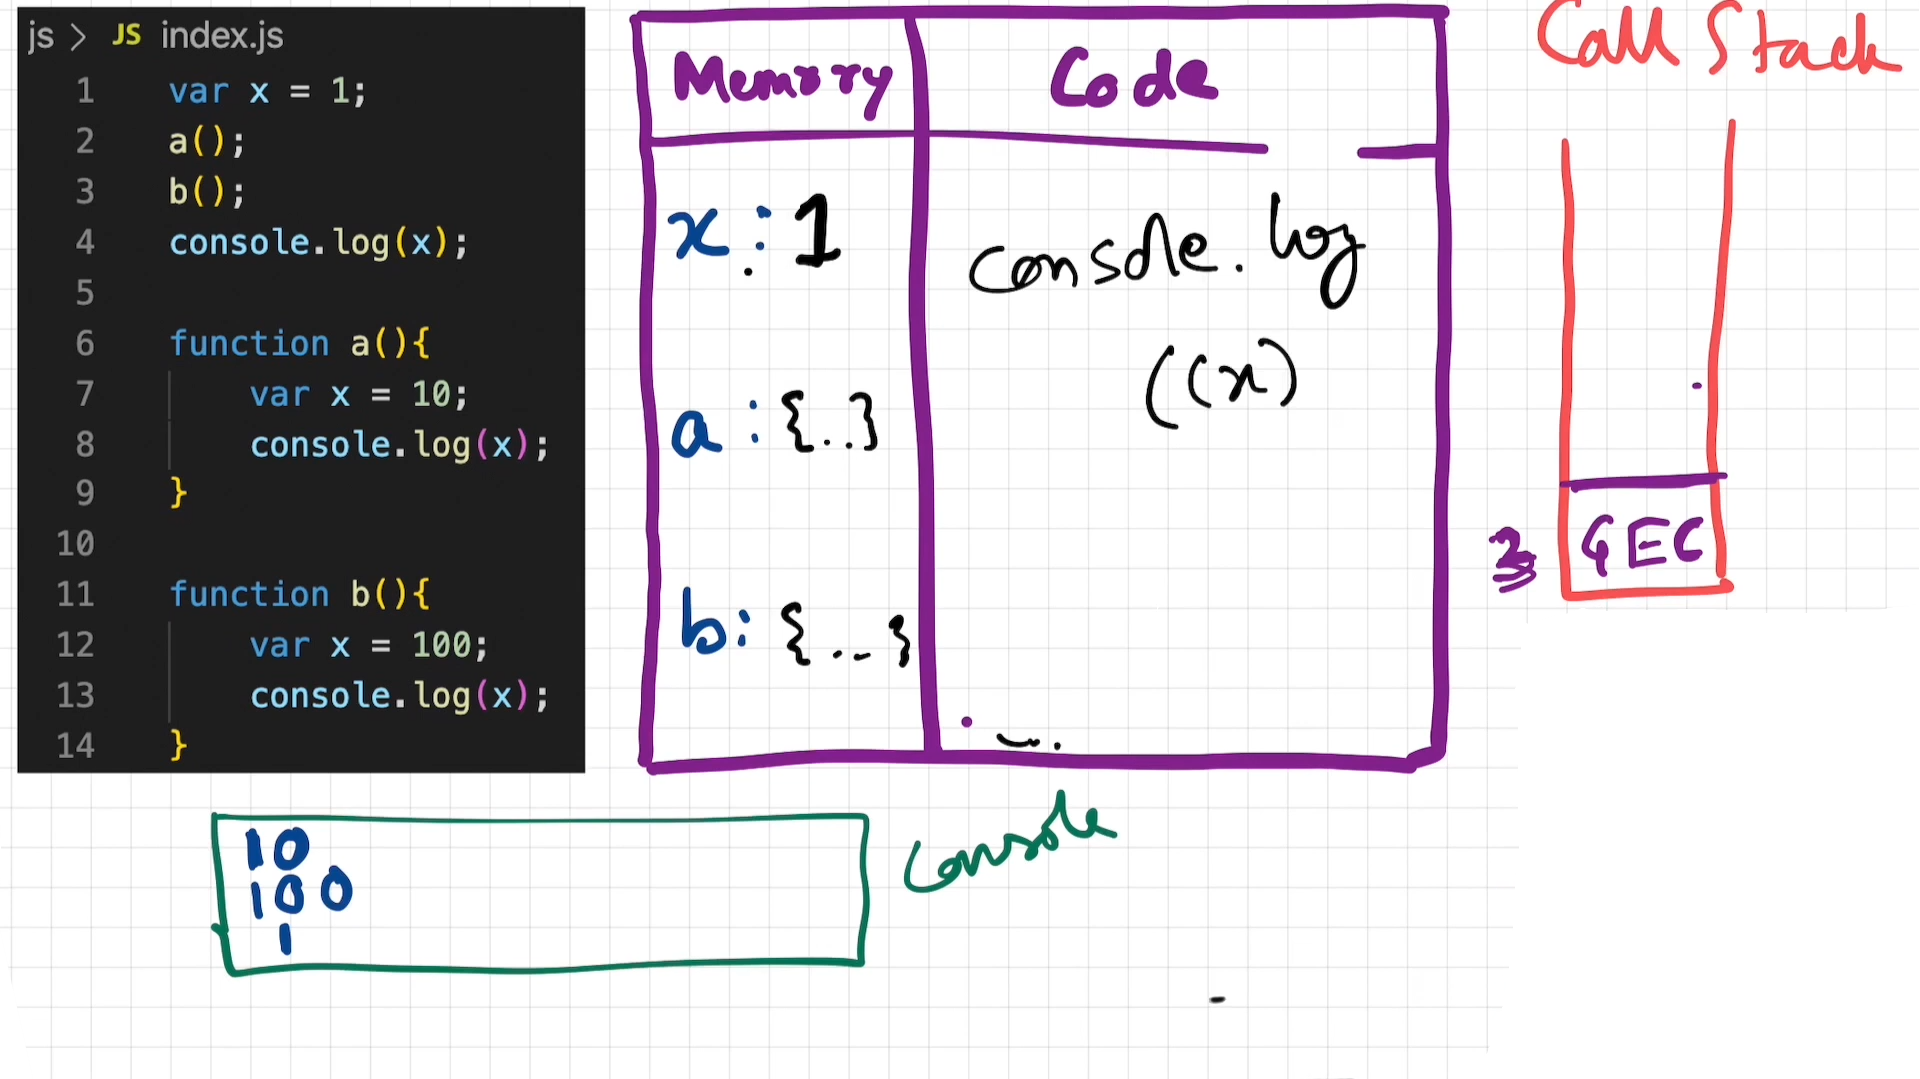 js > JS index.js
1 var x = 1;
2 a();
3 b();
4 console.log(x);
5
6 function a(){
7 var x = 10;
8 console.log(x);
9 }
10
11 function b(){
12 var x = 100;
13 console.log(x);
14 }
Memory Code
x : 1
console.log
((x)
a : {..}
b: {..}
Call Stack
GEC
10
100
1
Console